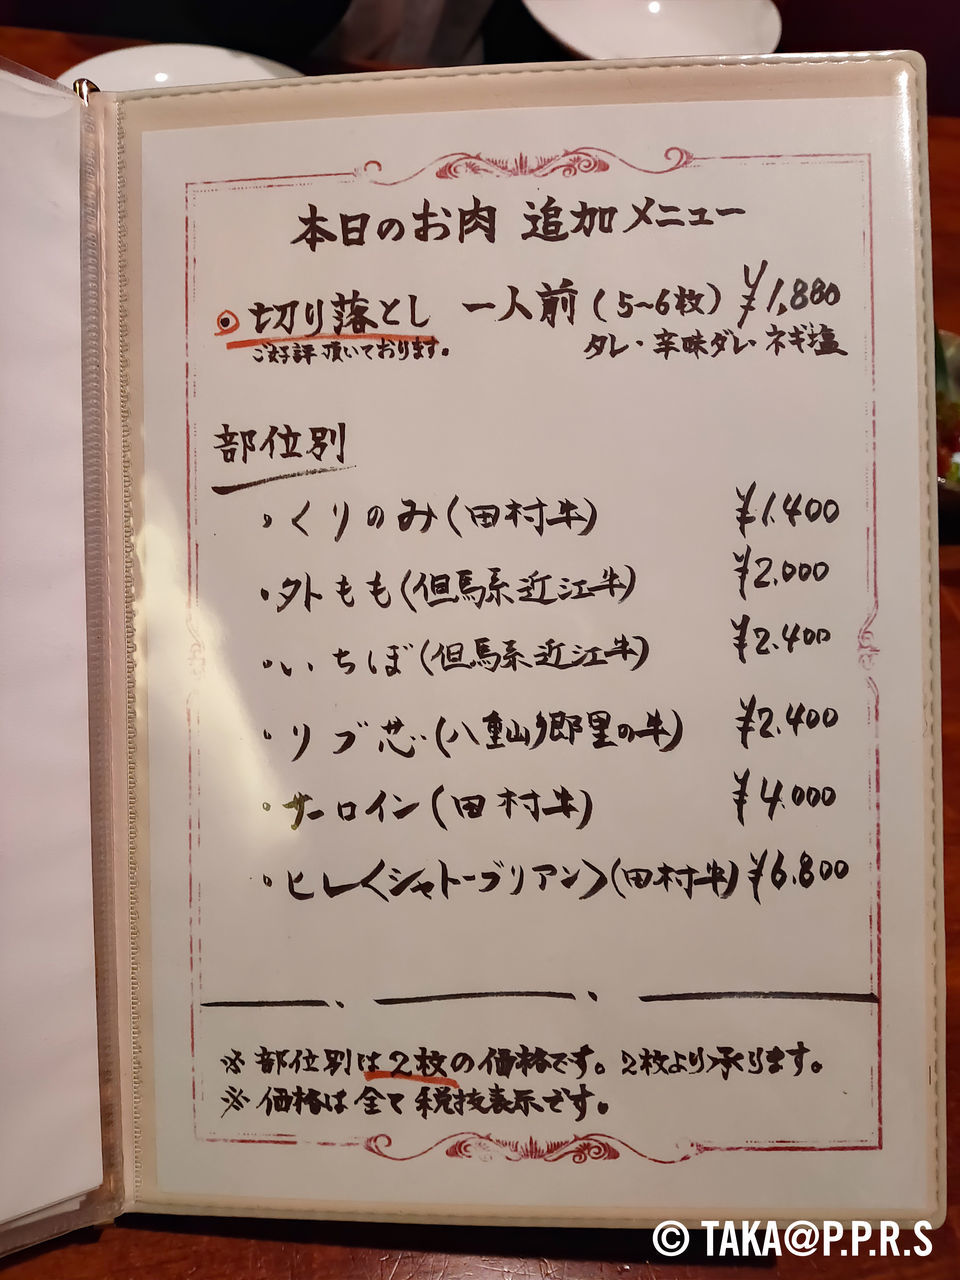 本日のお肉 追加メニュー
切り落とし 一人前(5~6枚) ¥1,880
ご好評頂いております。 タレ・辛味ダレ・ネギ塩
部位別
・くりのみ(田村牛) ¥1.400
・外もも(但馬系近江牛) ¥2.000
・いちぼ(但馬系近江牛) ¥2.400
・リブ芯(八重山郷里の牛) ¥2.400
・サーロイン(田村牛) ¥4.000
・ヒレ〈シャトーブリアン〉(田村牛) ¥6.800
※部位別は2枚の価格です。2枚より承ります。
※価格は全て税抜表示です。
© TAKA@P.P.R.S